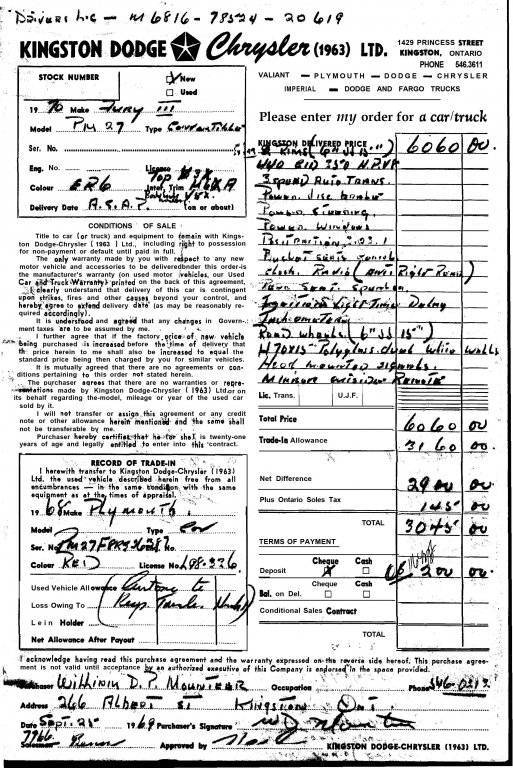 Drivers Lic - M6816-78524-20619
KINGSTON DODGE Chrysler (1963) LTD.
1429 PRINCESS STREET
KINGSTON, ONTARIO
PHONE 546.3611
STOCK NUMBER
New
Used
VALIANT — PLYMOUTH — DODGE — CHRYSLER
IMPERIAL — DODGE AND FARGO TRUCKS
Please enter my order for a car/truck
1970 Make Fury III
Model PM 27 Type Convertible
Ser. No.
Eng. No. License
Top V3X
Colour ER6 Inter. Trim
Delivery Date A.S.A.P. (on or about)
KINGSTON DELIVERED PRICE 6060 00
3 speed Auto Trans.
Power Disc Brakes
Power Steering
Power Windows
Radio
Time Delay
Road wheels (6" JJ 15")
H70X15 Polyglass dual white walls
Hood mounted signals.
Mirror Remote
Lic. Trans. U.J.F.
Total Price 6060 00
Trade-In Allowance 3160 00
Net Difference 2900 00
Plus Ontario Sales Tax 145 00
TOTAL 3045 00
TERMS OF PAYMENT
Cheque Cash
Deposit 200 00
Cheque Cash
Bal. on Del.
Conditional Sales Contract
TOTAL
CONDITIONS OF SALE
Title to car (or truck) and equipment to remain with Kings-
ton Dodge-Chrysler (1963) Ltd., including right to possession
for non-payment or default until paid in full.
The only warranty made by you with respect to any new
motor vehicle and accessories to be delivered under this order is
the manufacturer's warranty (on used motor vehicles, our Used
Car and Truck Warranty) printed on the back of this agreement.
I clearly understand that delivery of this car is contingent
upon strikes, fires and other causes beyond your control, and
hereby agree to extend delivery date (as may be reasonably re-
quired accordingly).
It is understood and agreed that any changes in Govern-
ment taxes are to be assumed by me.
I further agree that if the factory price of new vehicle
being purchased is increased before the time of delivery that
to price herein to me shall also be increased to equal the
standard price being then charged by you for similar vehicles.
It is mutually agreed that there are no agreements or con-
ditions pertaining to this order not stated herein.
The purchaser agrees that there are no warranties or repre-
sentations made by Kingston Dodge-Chrysler (1963) Ltd. or on
its behalf regarding the model, mileage or year of the used car
sold by it.
I will not transfer or assign this agreement or any credit
note or other allowance herein mentioned and the same shall
not be transferable by me.
Purchaser hereby certifies that he or she is twenty-one
years of age and legally entitled to enter into this contract.
RECORD OF TRADE-IN
I herewith transfer to Kingston Dodge-Chrysler (1963)
Ltd. the used vehicle described herein free from all
encumbrances — in the same condition, with the same
equipment as at the times of appraisal.
1968 Make Plymouth
Model Type Cov
Ser. No.
Colour RED License No. L98-226
Used Vehicle Allowance
Loss Owing To
Lein Holder
Net Allowance After Payout
I acknowledge having read this purchase agreement and the warranty expressed on the reverse side hereof. This purchase agree-
ment is not valid until acceptance by an authorized executive of this Company is endorsed in the space provided.
Purchaser William D. P. Occupation Phone 546-0313
Address 266 Albert St Kingston Ont.
Date Sept. 25 1969 Purchaser's Signature
7766
Salesman Approved by KINGSTON DODGE-CHRYSLER (1963) LTD.